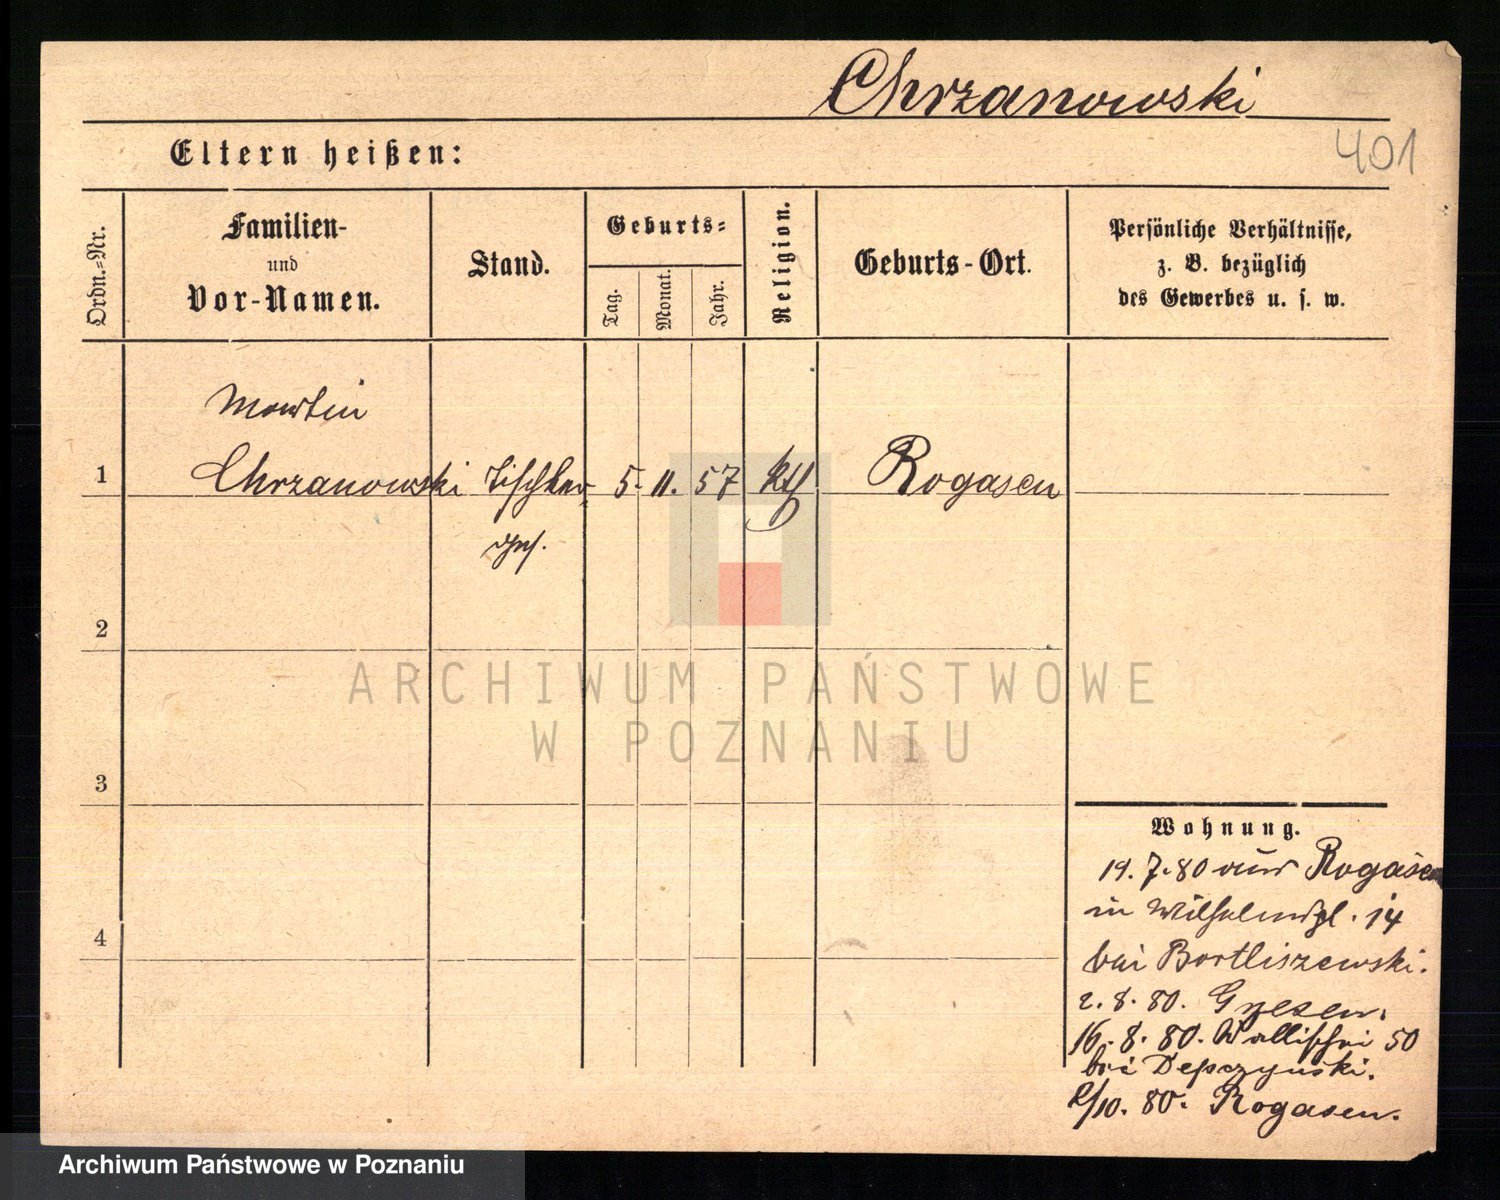 Chrzanowski
401
Eltern heißen:
Ordn.-Nr.
Familien-
und
Vor-Namen.
Stand.
Geburts-
Tag.
Monat.
Jahr.
Religion.
Geburts-Ort.
Persönliche Verhältnisse,
z. B. bezüglich
des Gewerbes u. s. w.
Martin
1 Chrzanowski Tischler 5. 11. 57 kth Rogasen
2
3
4
Wohnung.
19.7.80 aus Rogasen
in Wilhelmspl. 14
bei Bartliszewski.
2. 8. 80. Gnesen.
16. 8. 80. Wallischei 50
bei Depczynski.
2/10. 80. Rogasen.
ARCHIWUM PAŃSTWOWE
W POZNANIU
Archiwum Państwowe w Poznaniu